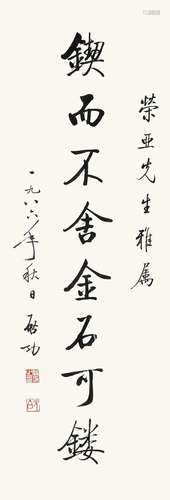 榮亚先生雅属
鍥而不舍金石可鏤
一九八六年秋日 啟功